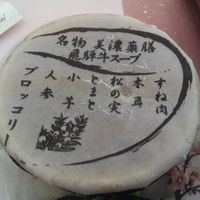 名物 美濃薬膳
飛騨牛スープ
すね肉
木耳
松の実
とまと
小芋
人参
ブロッコリー